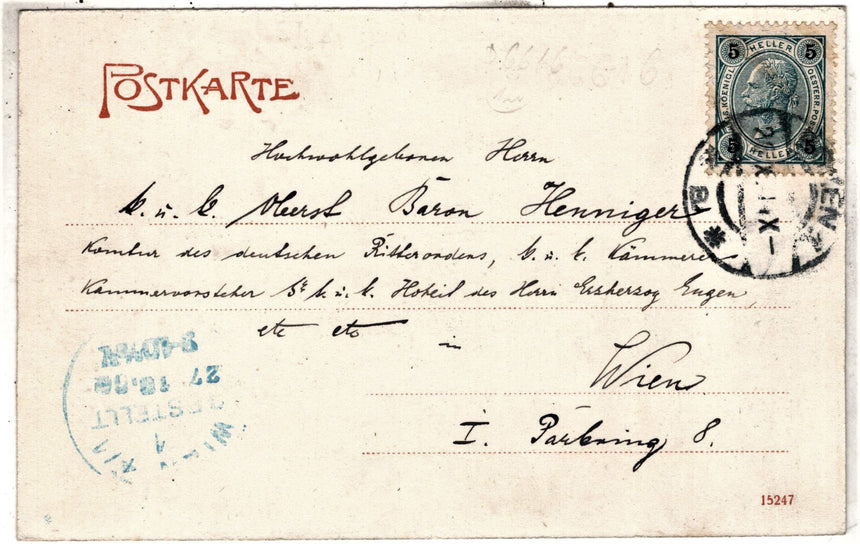 POSTKARTE
5 HELLER 5
5 HELLER 5
Hochwohlgeboren Herrn
k. u. k. Oberst Baron Henniger
Komtur des deutschen Ritterordens, k. u. k. Kämmerer
Kammervorsteher Sr k. u. k. Hoheit des Herrn Erzherzog Eugen
etc etc
in
Wien
I. Parkring 8.
WIEN
BESTELLT
WIEN
1
27
15247